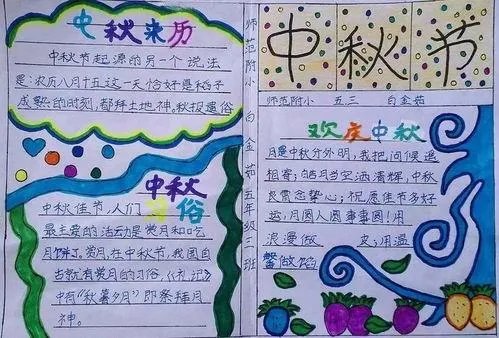 中秋来历
中秋节起源的另一个说法
是:农历八月十五这一天恰好是稻子
成熟的时刻,都拜土地神。秋报遗俗
中秋
习俗
中秋佳节,人们
最主要的活动是赏月和吃
月饼了。赏月,在中秋节,我国自
古就有赏月的习俗,《礼记》
中有“秋暮夕月”即祭拜月
神。
师范附小 白金茹 五年级三班
中秋节
师范附小 五三 白金茹
欢庆中秋
月是中秋分外明,我把问候遥
相寄;皓月当空洒清辉,中秋
良宵念挚心;祝愿佳节多好
运,月圆人圆事事圆!用
浪漫做 皮,用温
馨做馅